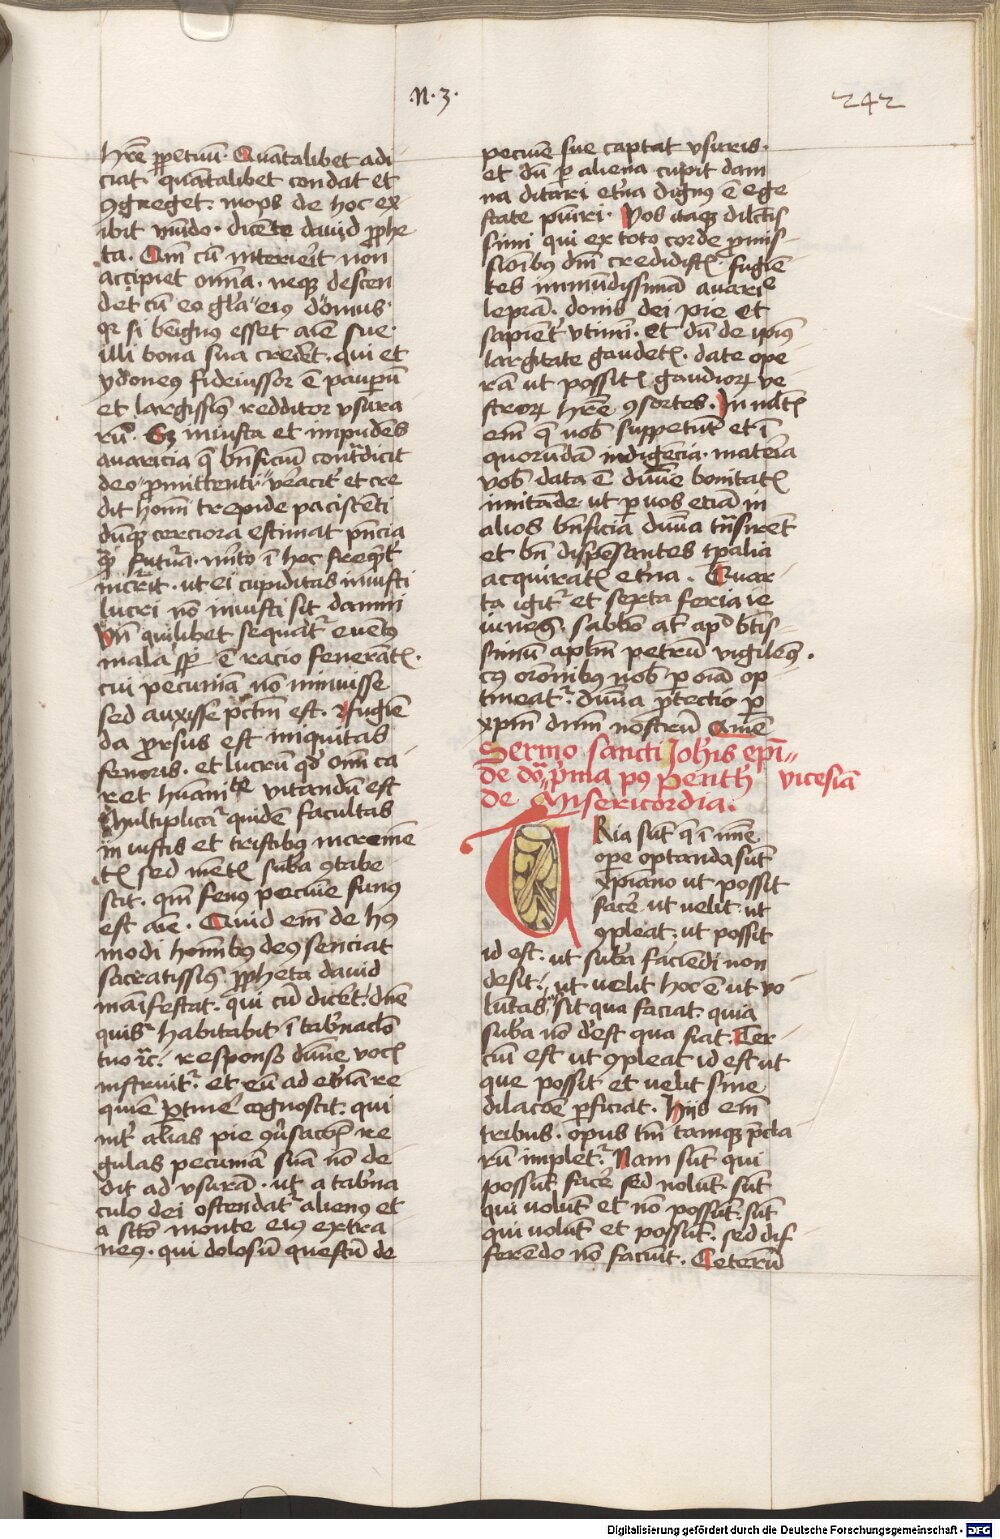 .N.3.
242
hr̄e ꝑpetuū. Quātalibet adi
ciat. quātalibet condat et
ꝯgreget. inops de hoc ex
ibit mūdo. dicēte dauid ꝓphe
ta. Qm̄ cū interierit non
accipiet om̄ia. neqꝫ descen
det cū eo gl̄a eiꝰ domus.
qꝛ si beīgnꝰ esset aīe sue.
illi bona sua crederet. qui et
ydoneꝰ fideiussor ē pauꝑū
et largissiꝰ redditor vsura
rū. Sꝫ iniusta et impudēs
auaricia q̄ bn̄ficiū contradicit
deo ꝓmittenti veracit̉ et cre
dit homi trepide paciscēti
dūqꝫ cerciora estimat p̄ncia
qͣꝫ futura. mīto ī hoc freq̄nt̉
incurrit. ut ei cupiditas iniusti
lucri nō iniusti sit damni
Vn̄ quilibet sequat̉ euētꝰ
mala sꝑ ē racio fenerātꝭ.
cui pecuniā nō minuisse
sed auxisse pctm̄ est. Refugiē
da ꝓrsus est iniquitas
fenoris. et lucrū qd̓ omī ca
ret hūanitate vitandū est
Multiplicat̉ quidē facultas
iniustis et tristibus incremē
tꝭ sed mētꝭ suba ꝯtabe
scit. qm̄ fenꝰ pecunie funꝰ
est aīe. Quid em̄ de hꝰ
modi homībꝰ deꝰ senciat
sacratissiꝰ ꝓpheta dauid
maīfestat. qui cū diceret. dn̄e
quis habitabit ī tabnaclo
tuo ⁊c̄. responso diuīe vocꝭ
instruit̉. et eū ad et̓nā re
quiē ꝑtine̓ cognoscit. qui
int̓ alias pie ꝯuersacōis re
gulas pecuniā suā nō de
dit ad vsurā. ut a tab̓na
culo dei ostendat̉ alienꝰ et
a scto monte eiꝰ extra
neꝰ. qui dolosū questū de
pecuīe sue captat vsuris.
et dū ꝑ aliena cupit dam
na ditari et̓na dignꝰ ē ege
state puniri. Vos itaqꝫ dilctis
simi qui ex toto corde ꝓmis
sionibꝰ dm̄ credidistꝭ fugiē
tes inmūdissimā auarie
leprā. donis dei pie et
sapient̓ vtimī. et dū de ipiꝰ
largitate gaudetꝭ. date ope
rā ut possitꝭ gaudioꝝ ve
stroꝝ hr̄e ꝯsortes. In mltꝭ
em̄ q̄ uob̓ suppetūt et ī
quorūdā indigēcia. materia
vob̓ data ē diuīe bonitatꝭ
imitāde. ut ꝑ uos etiā in
alios bn̄ficia diuīa trāsirēt
et bn̄ dispensantes tꝑalia
acquiratꝭ et̓na. Quar
ta igit̉ et sexta feria ie
iunemꝰ. sabbo aūt apd̓ btis
simū aplm̄ petrū vigilemꝰ.
cꝰ oronibus nob̓ ꝑ oīa op
tineat̉ diuīa ꝓtectio ꝑ
xpm̄ dnm̄ nostrū Amē
Sermo sancti Joh̓is epī
de doͣ p̓ma pꝰ Penth̓ vicesīa
de Misericordia.
TRia sūt q̄ ī omē
ope optanda sūt
xp̄iano ut possit
facere ut uelit. ut
ꝯpleat. ut possit
id est. ut suba faciēdi non
desit. ut uelit hoc ē ut vo
lūtas sit qua faciat. quia
suba nō deest qua fiat. Ter
ciū est ut ꝯpleat id est ut
que possit et uelit sine
dilacōe ꝑficiat. Hijs em̄
tribus. opus tm̄ tamqꝫ p̄cla
rū implet̉. Nam sūt qui
possūt facere sed nolūt. sūt
qui uolūt et nō possūt. sūt
qui uolūt et possūt. sed dif
ferēdo nō faciūt. Ceterū
Digitalisierung gefördert durch die Deutsche Forschungsgemeinschaft - DFG